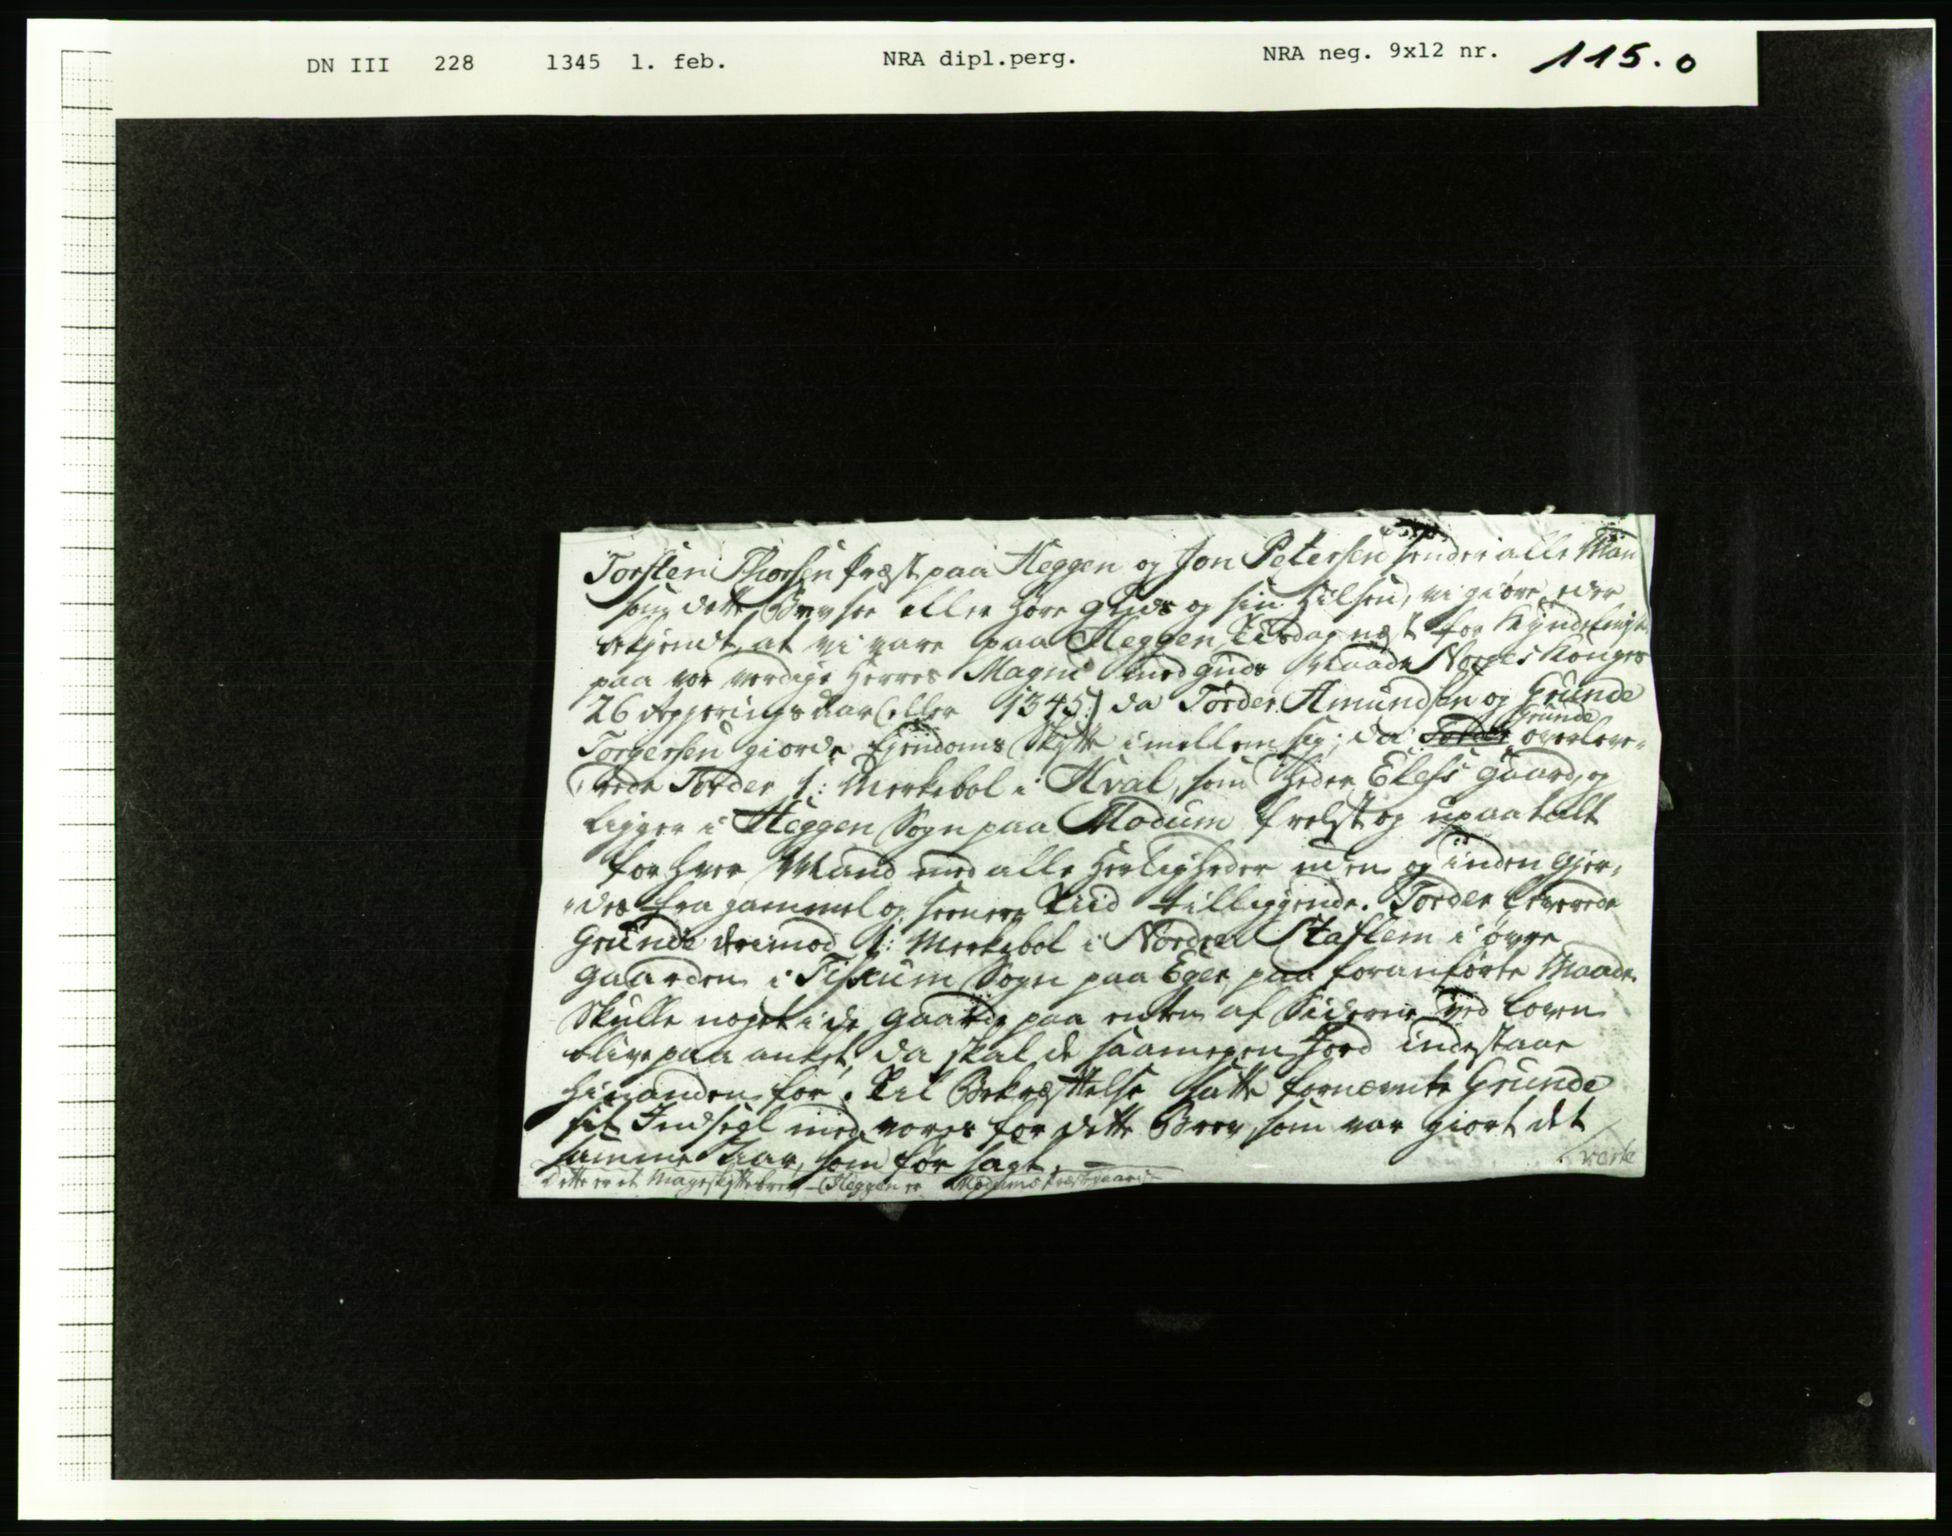 DN III 228 1345 1. feb. NRA dipl.perg. NRA neg. 9x12 nr. 115.0
Torsten Thorsen Præst paa Heggen og Jon Petersen sender alle Mæn
som dette Brev see eller høre Guds og sin Hilsen, vi giøre eder
bekjendt, at vi vare paa Heggen Tirsdag næst for Kyndelmiss
paa vor verdige Herres Magni med Guds Naade Norges Konges
26 Regjerings Aar (eller 1345:) da Torder Amundsen og Grunde
Torgersen giorde Ejendoms Skytte imellem sig; da Torder Grunde overleve-
rede Torder 1: Merkebol i Hval, som heder Elefs Gaard, og
ligger i Heggen Sogn paa Modum frelst og upaatalt
for hver Mand med alle Herligheder uden og inden Gjer,
des fra gammel og seenere Tiid tilliggende. Torder leverede
Grunde derimod 1: Merkebol i Nordre Staflem i øvre
Gaarden i Fiskum Sogn paa Eger paa foranførte Maade.
Skulle noget i de Gaarde paa enten af Siderne ved Loven
blive paa anket, da skal de saamegen Jord indestaae
hinanden for. Til Bekræftelse satte fornævnte Grunde
sit Indsegl med vores for dette Brev, som var giort det
samme Aar, som før sagt.
verte
Dette er et Mageskyttebrev – Heggen er Modums Præstegaard –